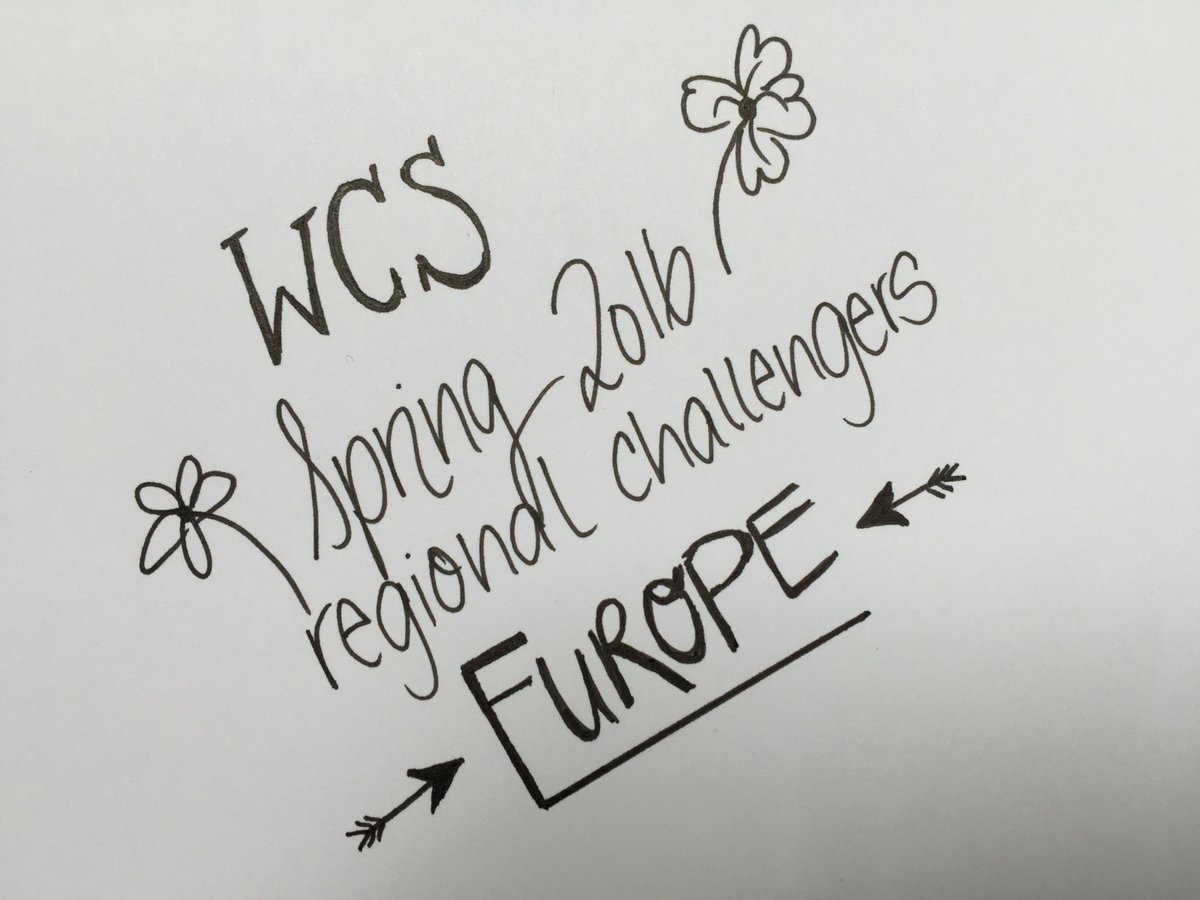 WCS
Spring 2016
regional challengers
EUROPE